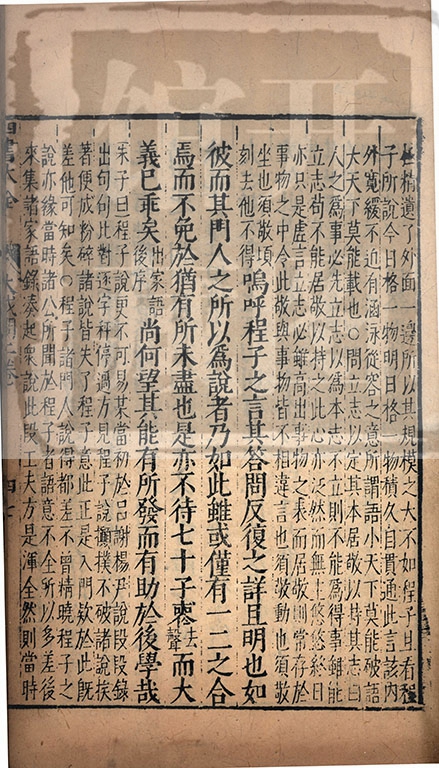 精遺了外面一邊所以其規模之大不如程子且看程
子所說今日格一物明日格一物積久自貫通此言該內
外寬緩不迫有涵泳從容之意所謂語小天下莫能破語
大天下莫能載也○問立志以定其本居敬以持其志曰
人之爲事必先立志以爲本志不立則不能爲得事雖能
立志苟不能居敬以持之此心亦泛然而無主悠悠終日
亦只是虛言立志必雖高出事物之表而居敬則常存於
事物之中令此敬與事物皆不相違言也須敬動也須敬
坐也須敬頃
刻去他不得
嗚呼程子之言其答問反復之詳且明也如
彼而其門人之所以爲說者乃如此雖或僅有一二之合
焉而不免於猶有所未盡也是亦不待七十子喪去聲而大
義已乖矣
出家語
後序
尚何望其能有所發而有助於後學哉
朱子曰程子說更不可易某當初於呂謝楊尹說段段錄
出句句比對逐字秤停過方見程子說攧撲不破諸說挨
著便成粉碎諸說皆失了程子意此正是入門欵於此既
差他可知矣○程子諸門人說得都差不曾精曉程子之
說亦緣當時諸公所聞於程子者語意不全所以多差後
來集諸家語錄湊起衆說此段工夫方是渾全然則當時
四書大全